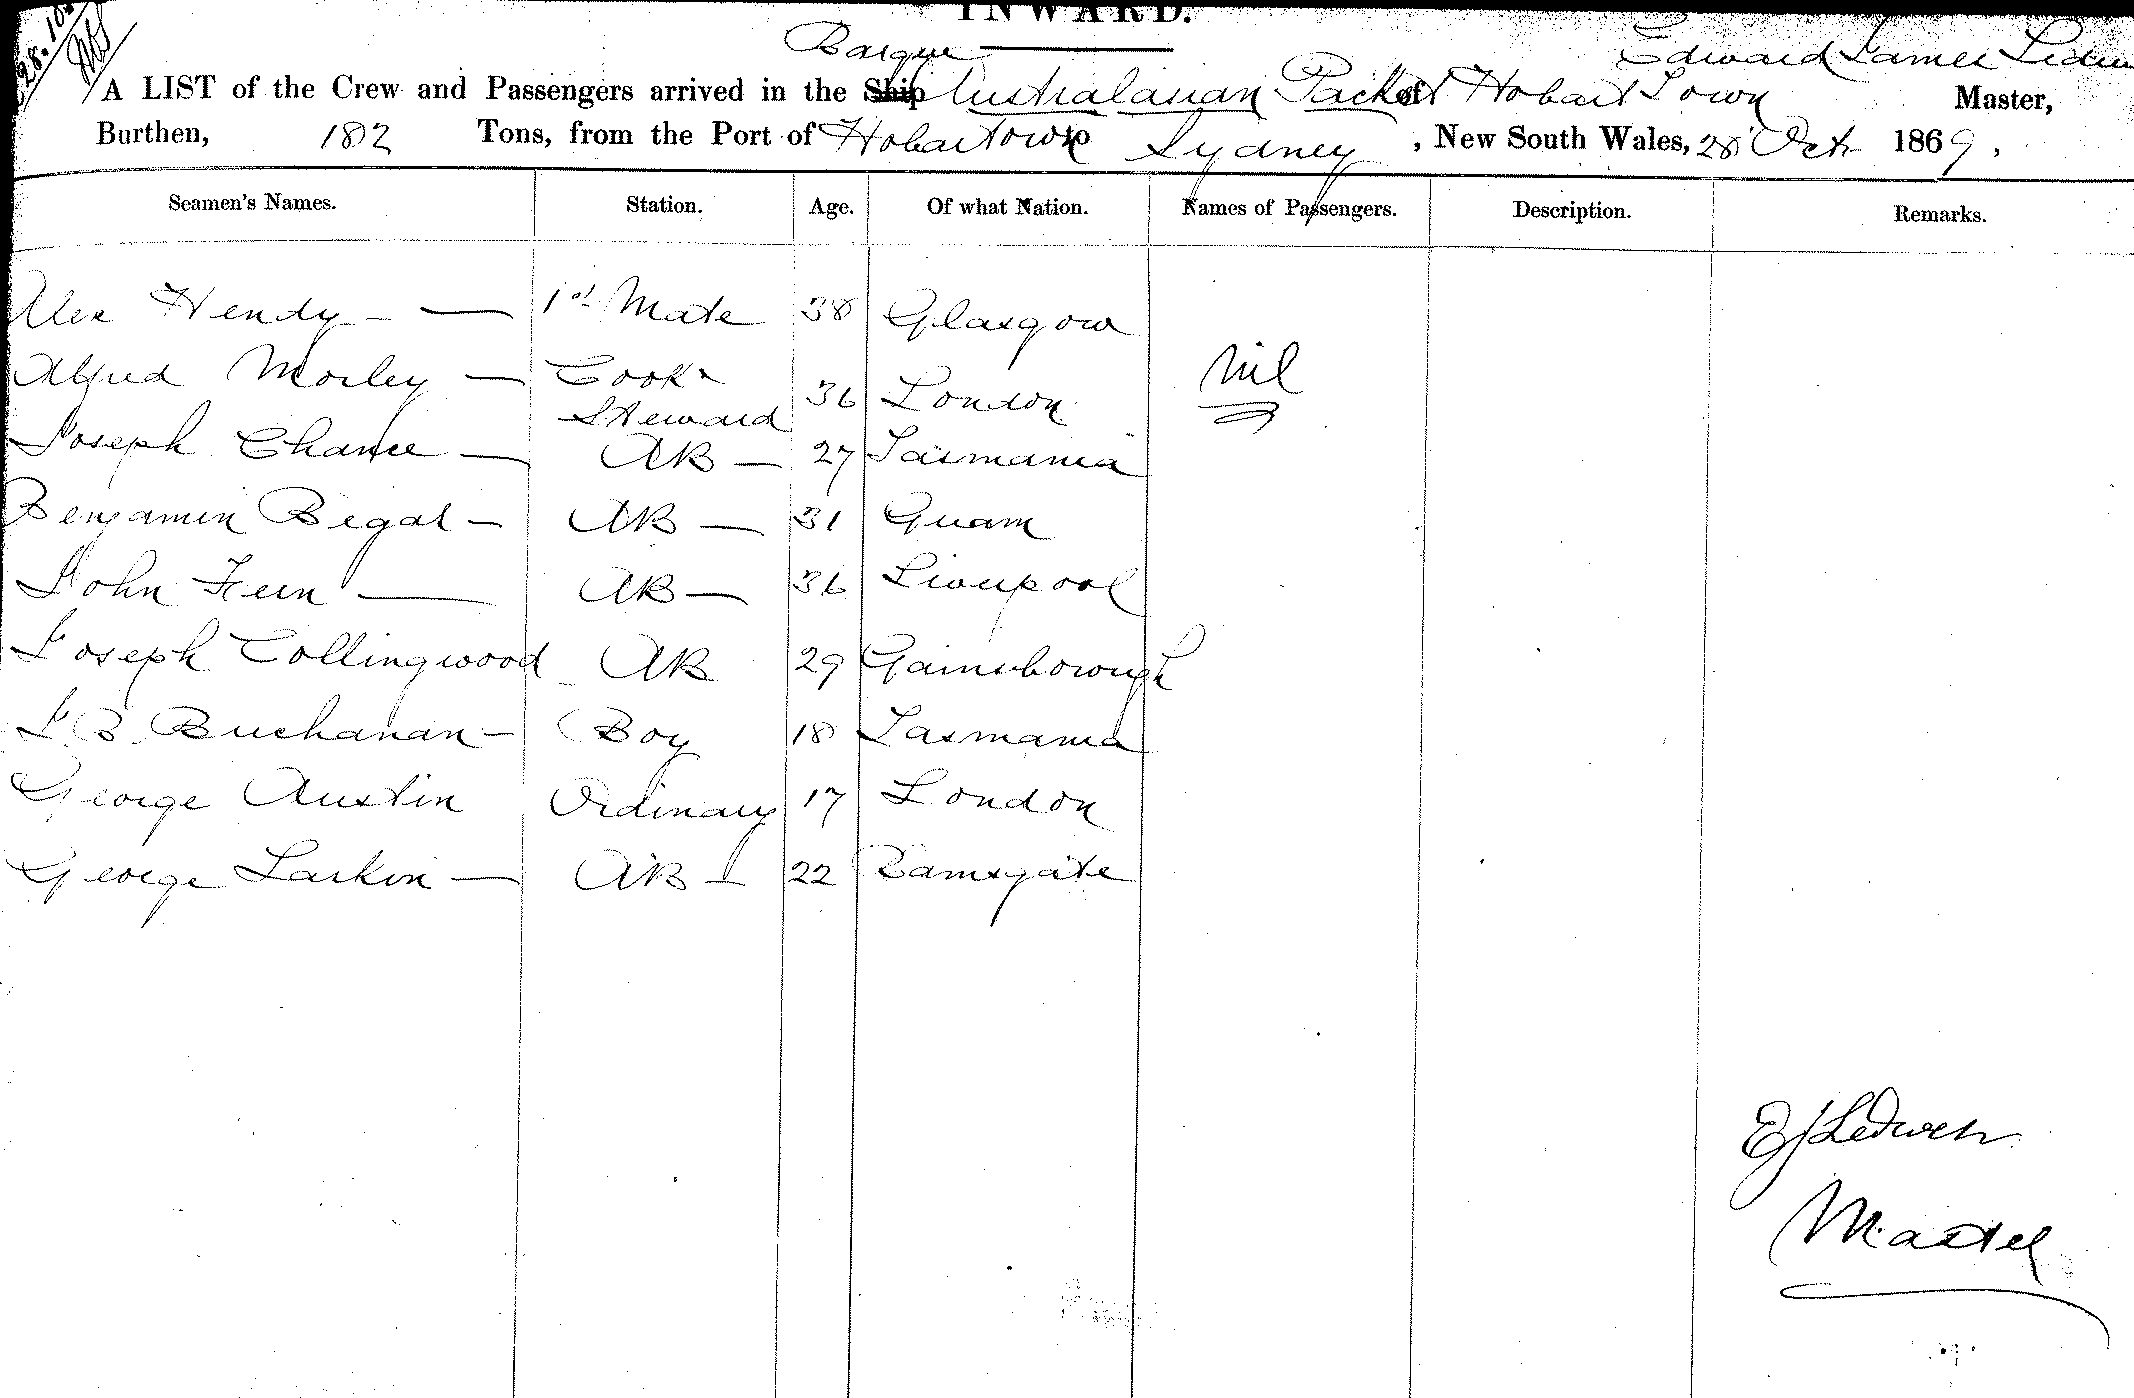 INWARD.
28.10
Barque Edward James
A LIST of the Crew and Passengers arrived in the Ship Australasian Packet of Hobart Town Master,
Burthen, 182 Tons, from the Port of Hobartown to Sydney, New South Wales, 28 Oct 1869.
Seamen's Names. Station. Age. Of what Nation. Names of Passengers. Description. Remarks.
Alex Hendy 1st Mate 38 Glasgow
Alfred Morley Cook & Steward 36 London Nil
Joseph Chance AB 27 Tasmania
Benjamin Begat AB 31 Guam
John Fern AB 36 Liverpool
Joseph Collingwood AB 29 Gainsborough
J B Buchanan Boy 18 Tasmania
George Austin Ordinary 17 London
George Larkin AB 22 Ramsgate
E J Ledwell
Master